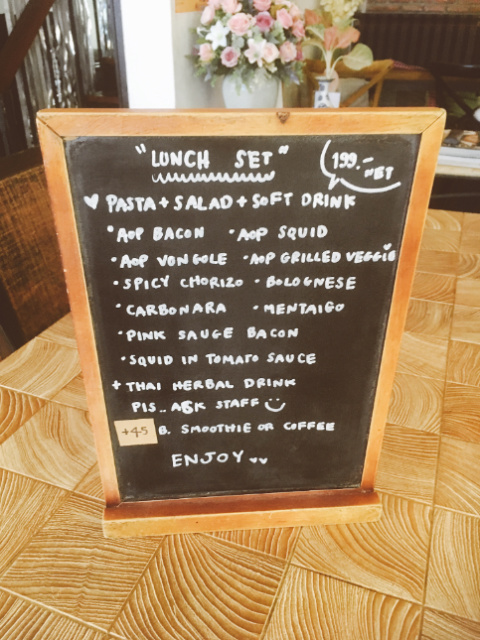 "LUNCH SET"
199.-
NET
♥ PASTA + SALAD + SOFT DRINK
• AOP BACON • AOP SQUID
• AOP VONGOLE • AOP GRILLED VEGGIE
• SPICY CHORIZO • BOLOGNESE
• CARBONARA • MENTAIGO
• PINK SAUGE BACON
• SQUID IN TOMATO SAUCE
+ THAI HERBAL DRINK
PlS.. ASK STAFF
+45 B. SMOOTHIE OR COFFEE
ENJOY ♥♥